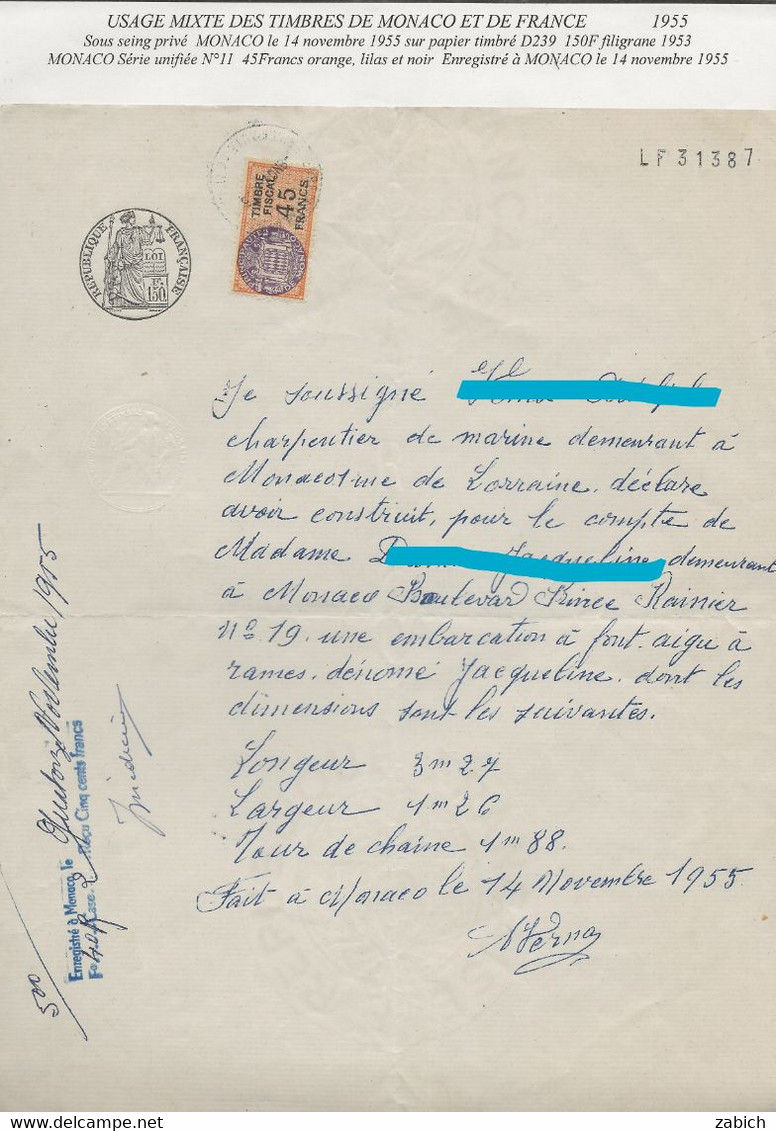 USAGE MIXTE DES TIMBRES DE MONACO ET DE FRANCE 1955
Sous seing privé MONACO le 14 novembre 1955 sur papier timbré D239 150F filigrane 1953
MONACO Série unifiée N°11 45Francs orange, lilas et noir Enregistré à MONACO le 14 novembre 1955
LF 31387
TIMBRE
FISCAL
45
FRANCS
RÉPUBLIQUE FRANÇAISE
LOI
F.
150
Je soussigné
charpentier de marine demeurant à
Monaco rue de Lorraine. déclare
avoir construit, pour le compte de
Madame Jacqueline demeurant
à Monaco Boulevar Prince Rainier
n° 19. une embarcation à font. aigu à
rames. dénomé Jacqueline. dont les
dimensions sont les suivantes.
Longeur 3m 27
Largeur 1m 26
Tour de chaine 1m 88.
Fait à Monaco le 14 Novembre 1955
Enregistré à Monaco, le Quatorze Novembre 1955
F° 40 R Case 2 Reçu Cinq cents francs
500
zabich